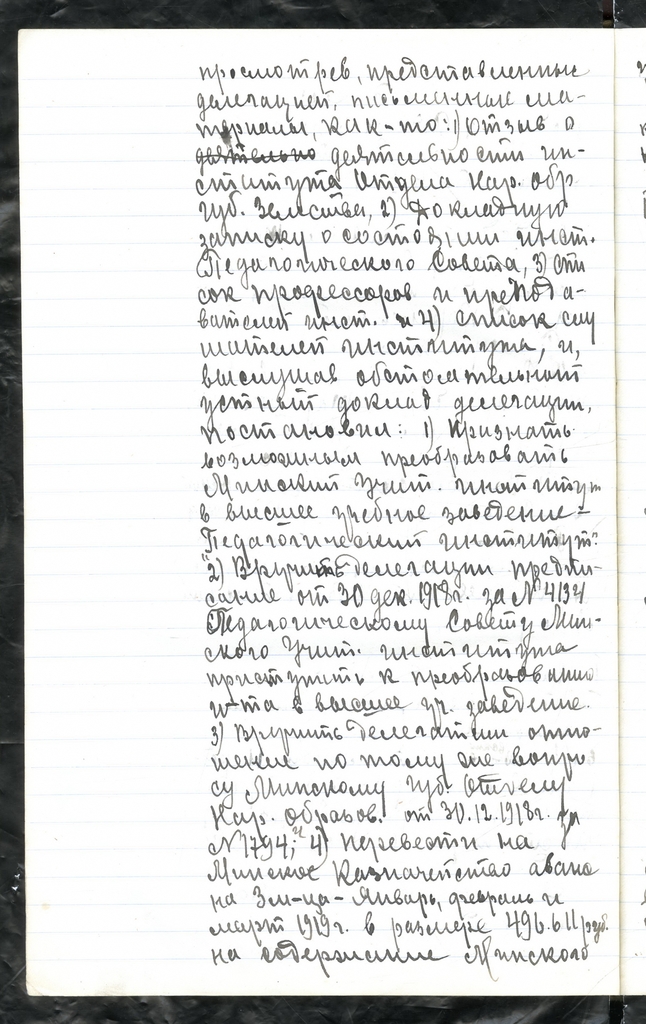 просмотрев, представленные
делегацией, письменные ма-
териалы, как-то: 1) Отзыв о
деятельности ин-
ститута Отдела Нар. обр.
Губ. Земства, 2) Докладную
записку о состоянии инст.
Педагогического Совета, 3) Спи
сок профессоров и препода-
вателей инст. и 4) список слу
шателей института, и,
выслушав обстоятельный
устный доклад делегации,
постановил: 1) Признать
возможным преобразовать
Минский Учит. институт
в высшее учебное заведение-
Педагогический институт".
"2) Вручить делегации предпи-
сание от 30 дек. 1918г. за № 4134
Педагогическому Совету Мин-
ского Учит. института
приступить к преобразованию
и-та в высшее уч. заведение.
3) Вручить делегации отно-
шение по тому же вопро
су Минскому Губ. Отделу
Нар. Образов. от 30.12.1918г. за
№ 1794; и 4) перевести на
Минское Казначейство аванс
на 3м-ца-Январь, февраль и
март 1919г. в размере 496.611 руб.
на содержание Минского